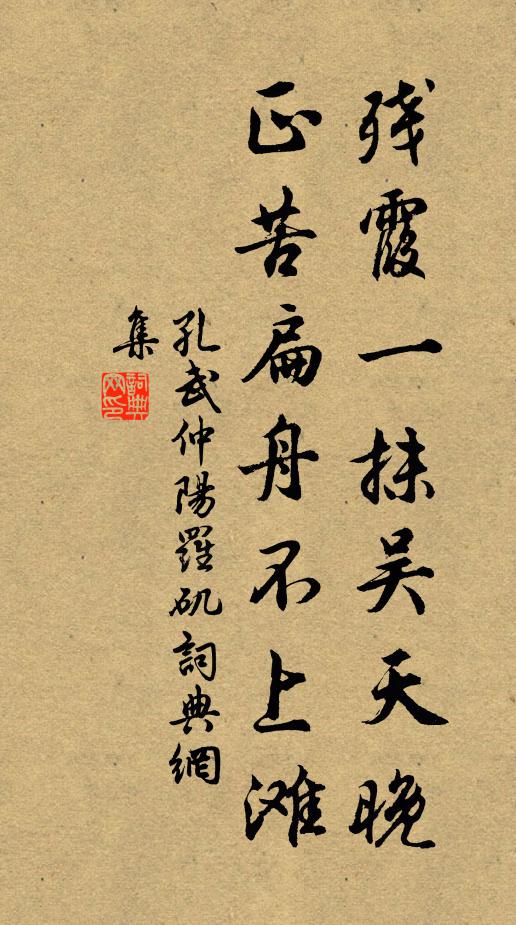 残霞一抹吴天晚
正苦扁舟不上滩
孔武仲陽羅矶詞典網
集
詞典網印